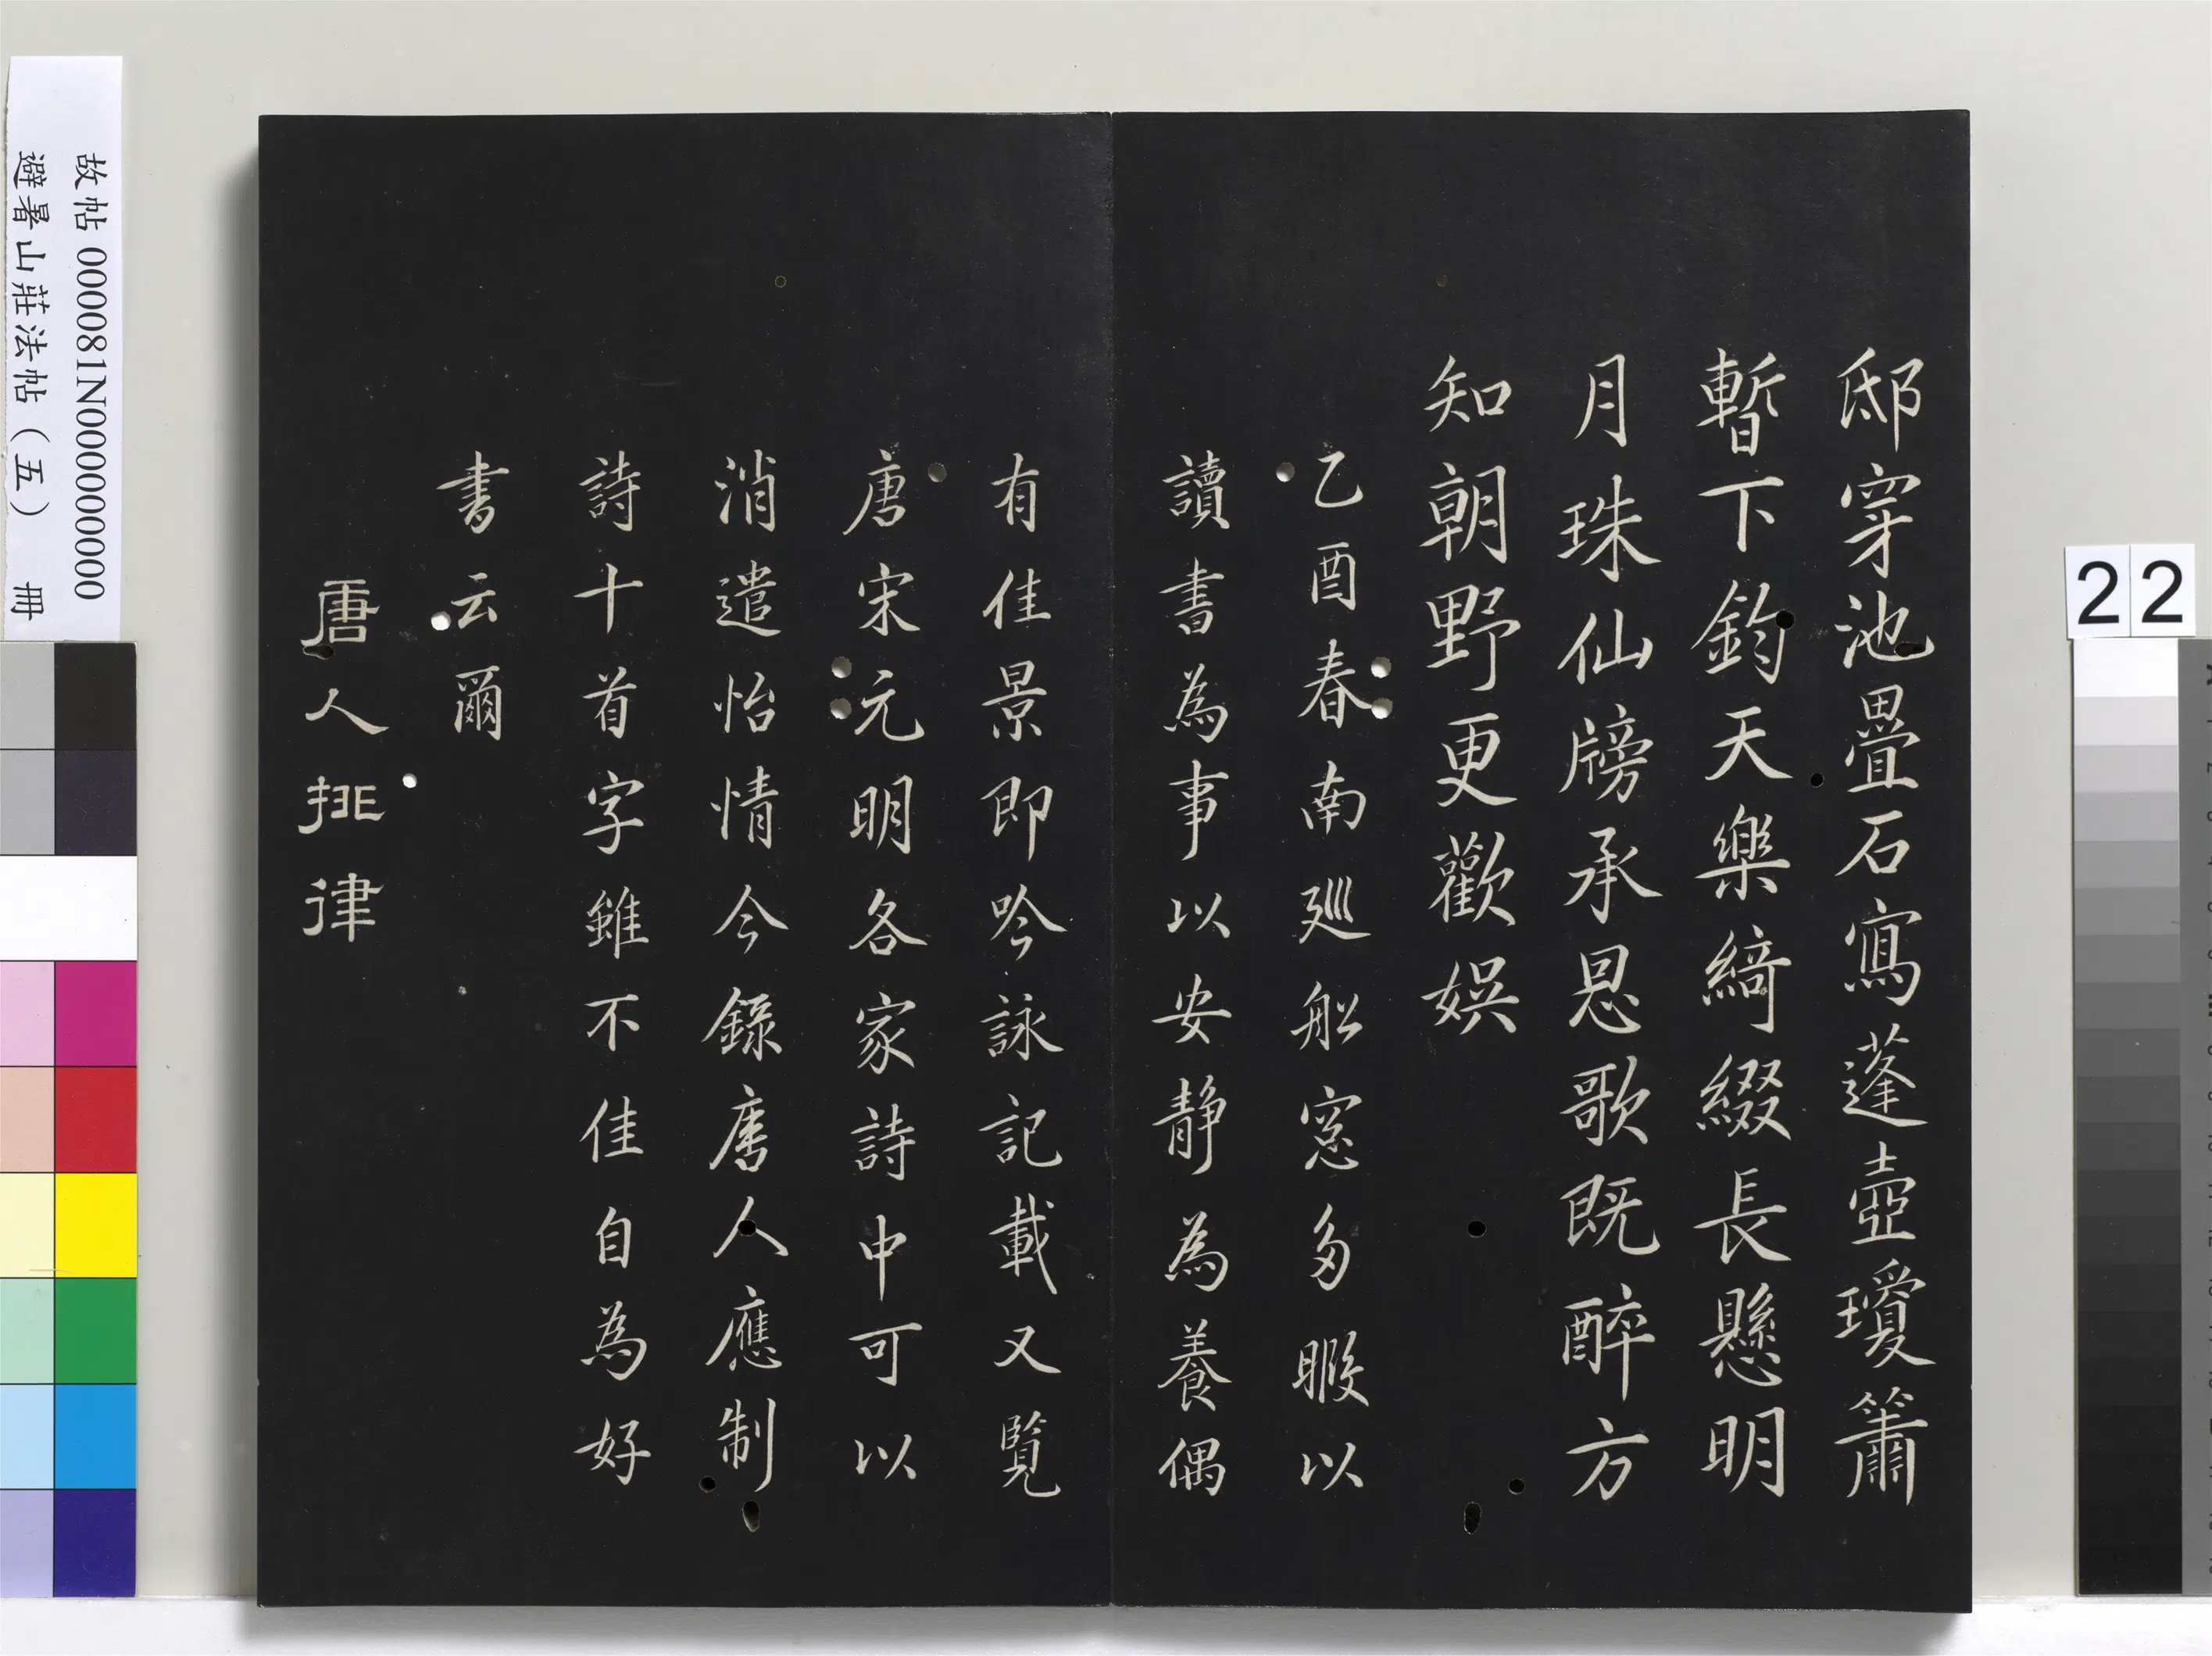 邸穿池疊石寫蓬壺瓊簫
暫下鈞天樂綺綴長懸明
月珠仙牓承恩歌既醉方
知朝野更歡娛
乙酉春南廵船窓多暇以
讀書為事以安靜為養偶
有佳景即吟詠記載又覧
唐宋元明各家詩中可以
消遣怡情今錄唐人應制
詩十首字雖不佳自為好
書云爾
唐人排律
故帖 000081N000000000
避暑山莊法帖(五) 冊
22